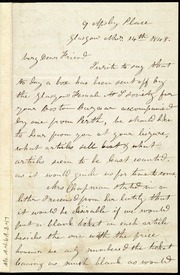 9 Apsley Place
Glasgow Nov. 14th 1848.
Very Dear Friend
I write to say that
to day a box has been sent off by
the Glasgow Female A S Society for
your Boston Bazaar accompanied
by one from Perth, we should like
to hear from you at your leisure,
what articles sell best & what
articles seem to be least wanted.
as it would guide us for time to come
Mrs Chapman stated in a
letter I received from her lately, that
it would be desirable if we would
put a blank ticket on each article
besides the one with the price,
when we only numbered the ticket
leaving as much blank as would